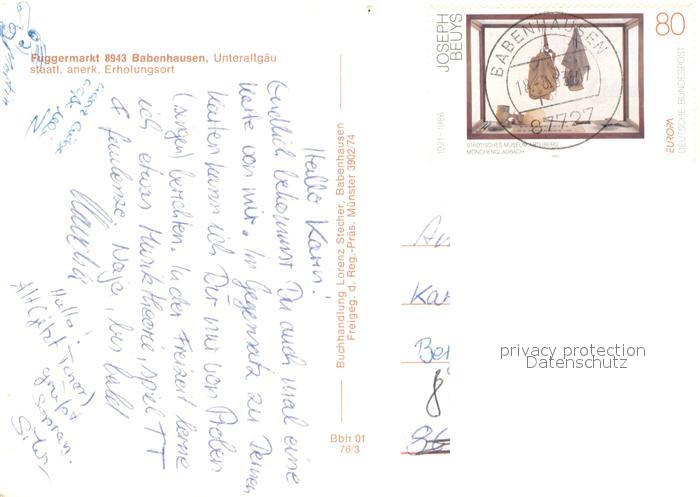 Fuggermarkt 8943 Babenhausen, Unterallgäu
staatl. anerk. Erholungsort
Hallo Karin!
Endlich bekommst Du auch mal eine
Karte von mir. Im Gegensatz zu Deinen
Karten kann ich Dir nur von Proben
(singen) berichten. In der Freizeit lerne
ich etwas Musiktheorie, spiel TT
& faulenze. Naja, bis bald
Hallo!
Alt (jetzt Tenor)
grüßt
Sopran.
Buchhandlung Lorenz Stecher, Babenhausen
Freigeg. d. Reg.-Präs. Münster 3902/74
Bbh 01
76/3
JOSEPH
BEUYS
1921-1986
80
DEUTSCHE BUNDESPOST
EUROPA
STÄDTISCHES MUSEUM ABTEIBERG
MÖNCHENGLADBACH
BABENHAUSEN
87727
An
Kar
Ber
8
privacy protection
Datenschutz